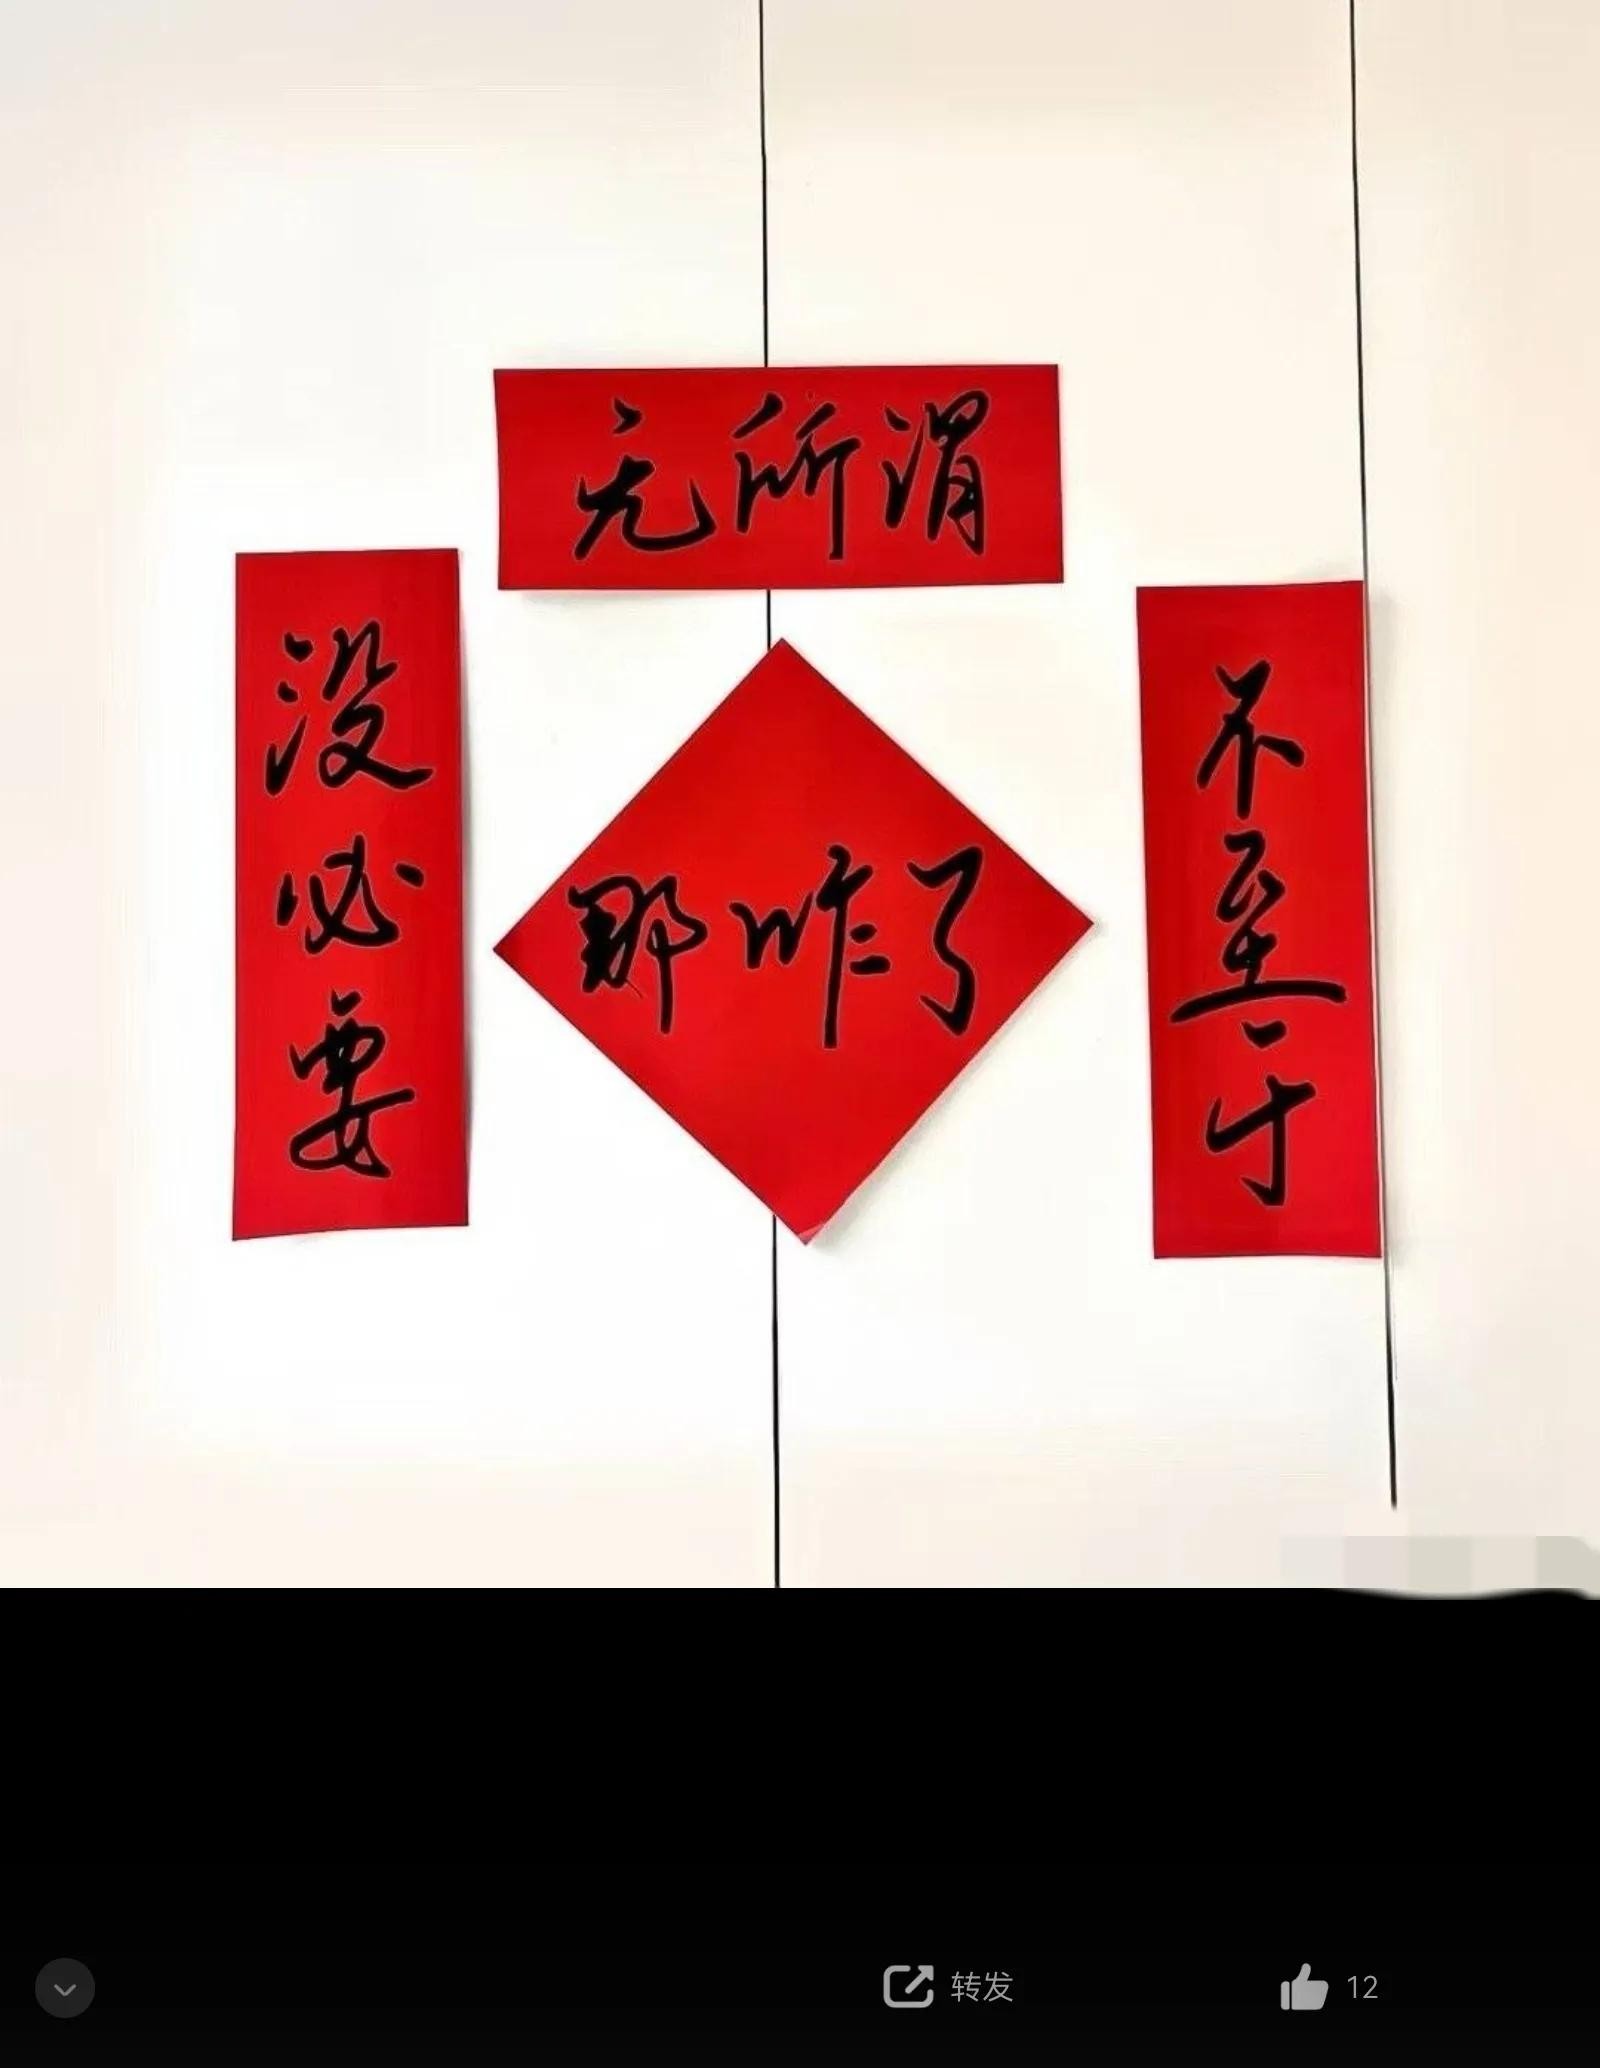 无所谓
没必要
那咋了
不至于
转发
12